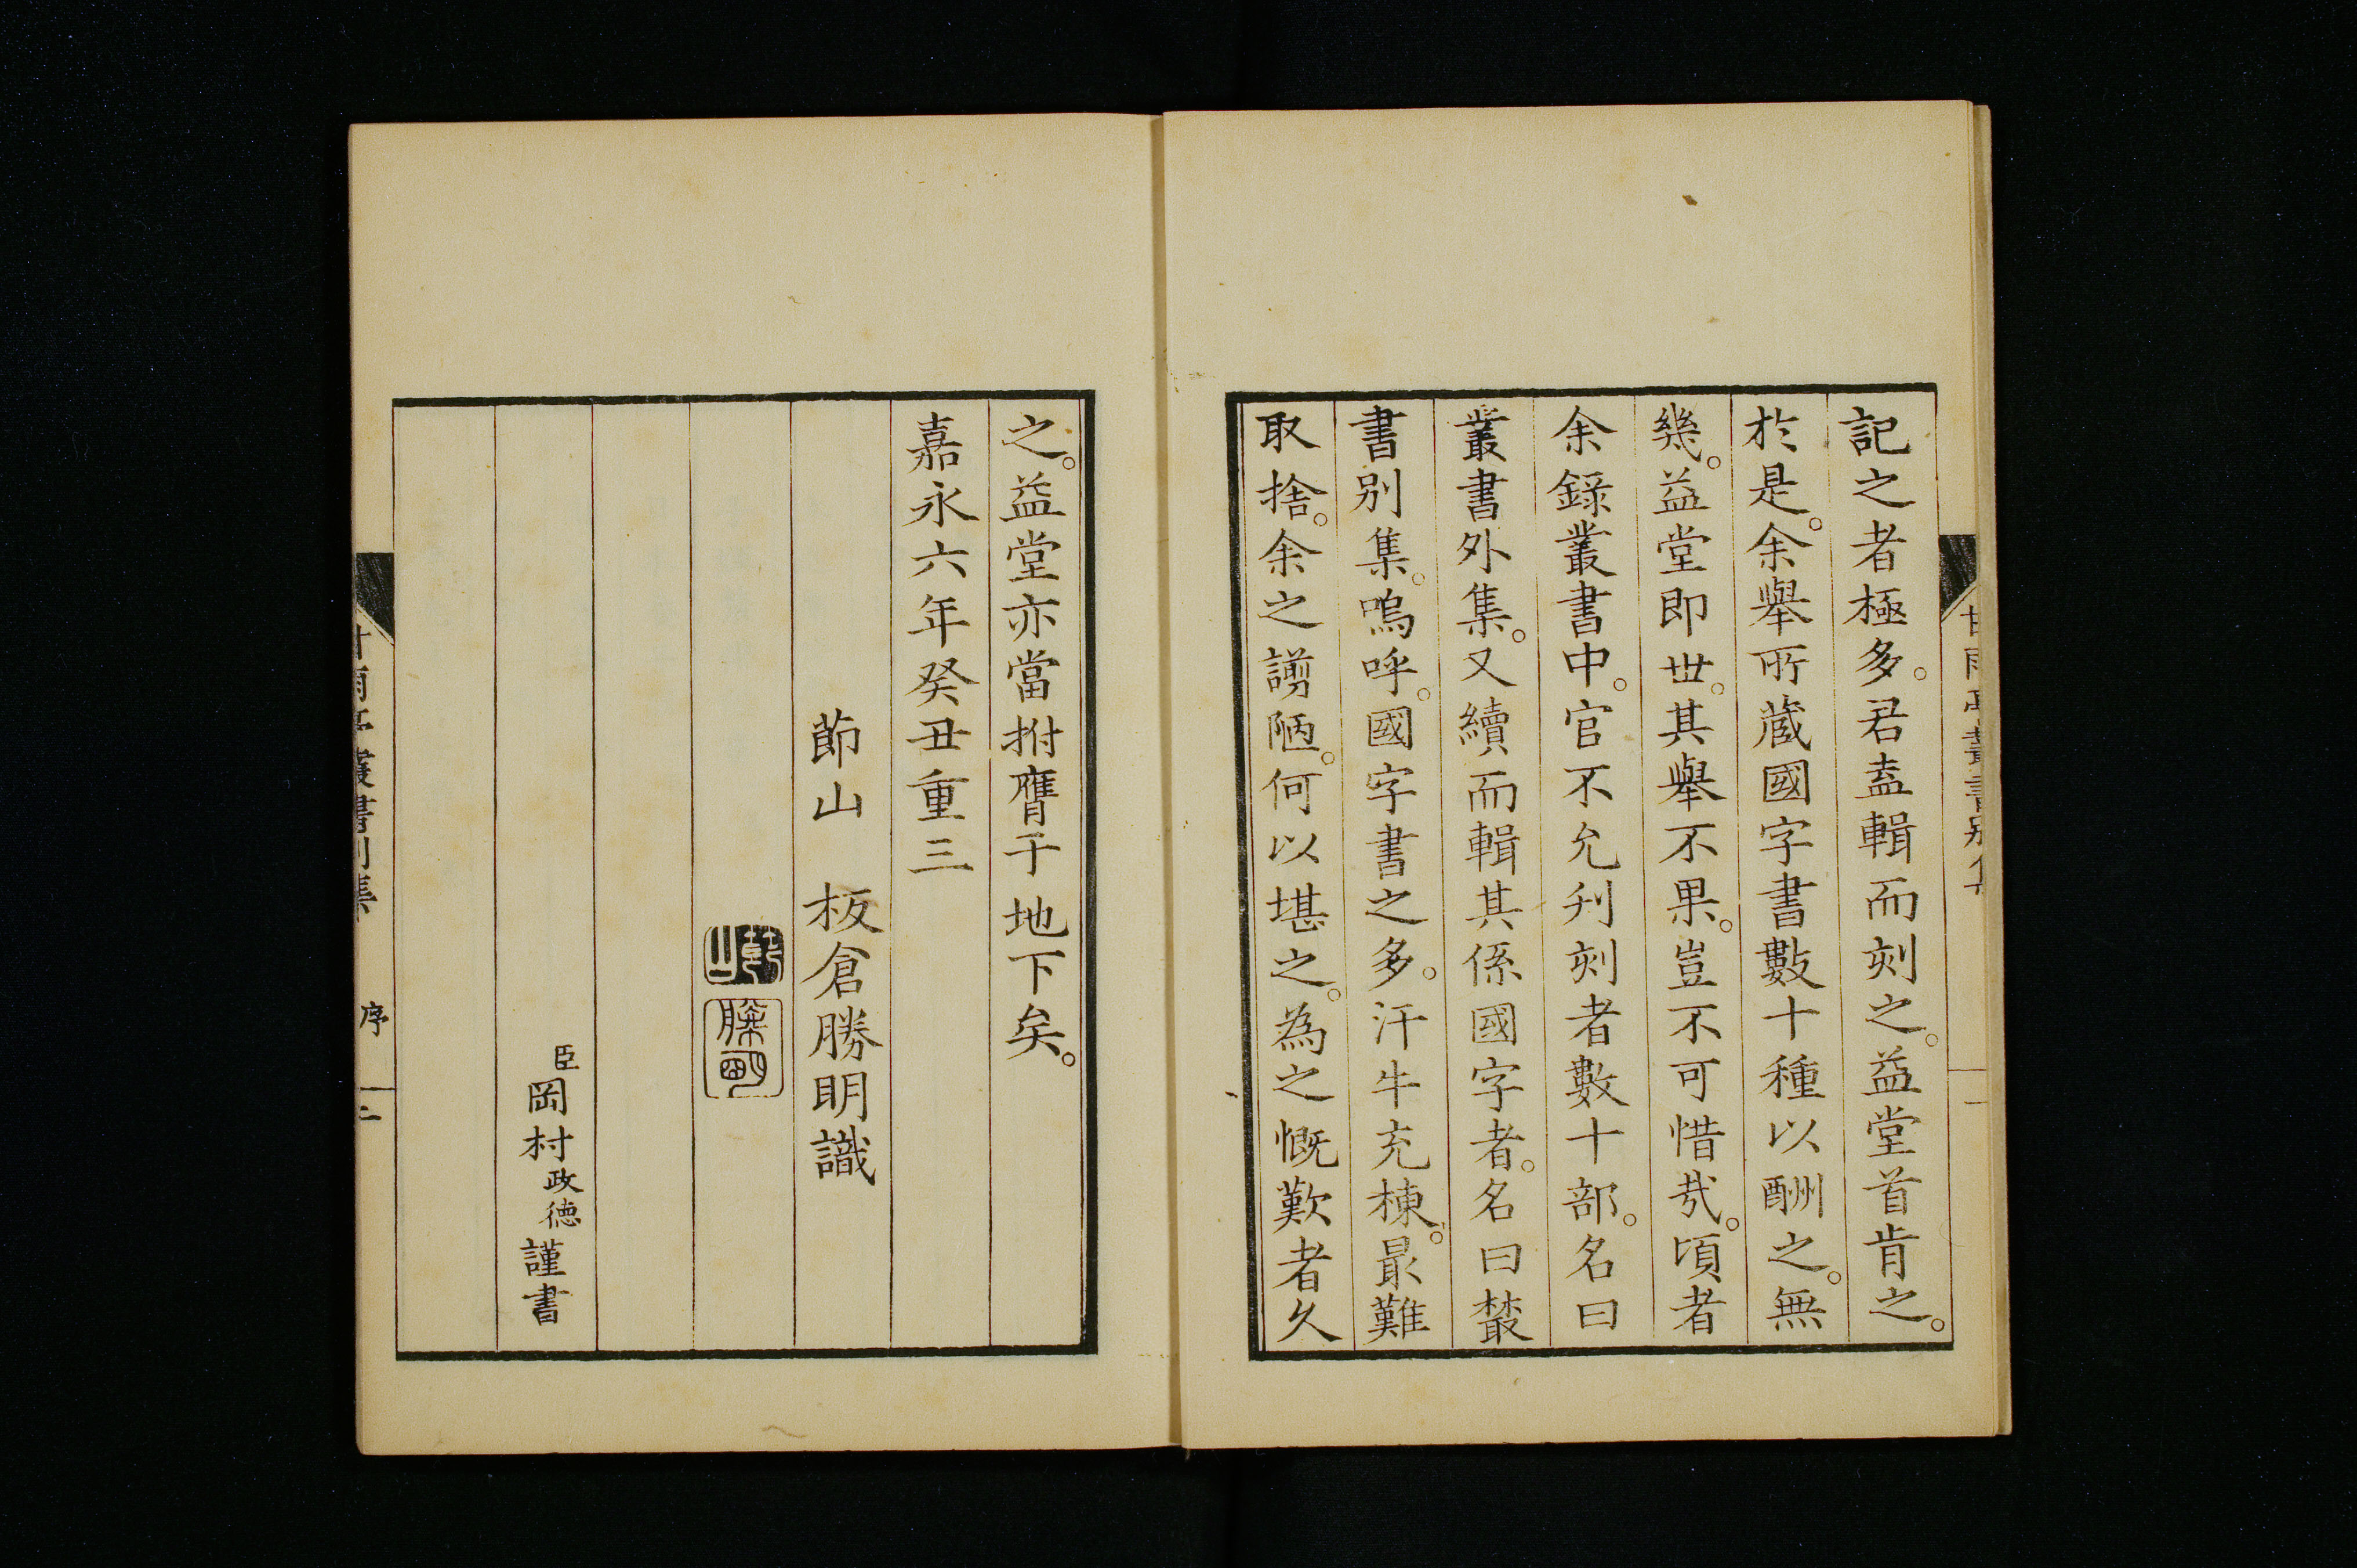 記之者極多。君盍輯而刻之。益堂首肯之。
於是。余舉所蔵國字書數十種以酬之。無
幾。益堂即世。其舉不果。豈不可惜㢤。頃者
余錄叢書中。官不允刋刻者數十部。名曰
叢書外集。又續而輯其係國字者。名曰藂
書別集。嗚呼。國字書之多。汗牛充棟。最難
取捨。余之謭陋。何以堪之。為之慨歎者久
之。益堂亦當拊膺于地下矣。
嘉永六年癸丑重三
節山 板倉勝明識
節山
勝明
臣岡村政徳謹書
甘雨亭叢書別集 序 二